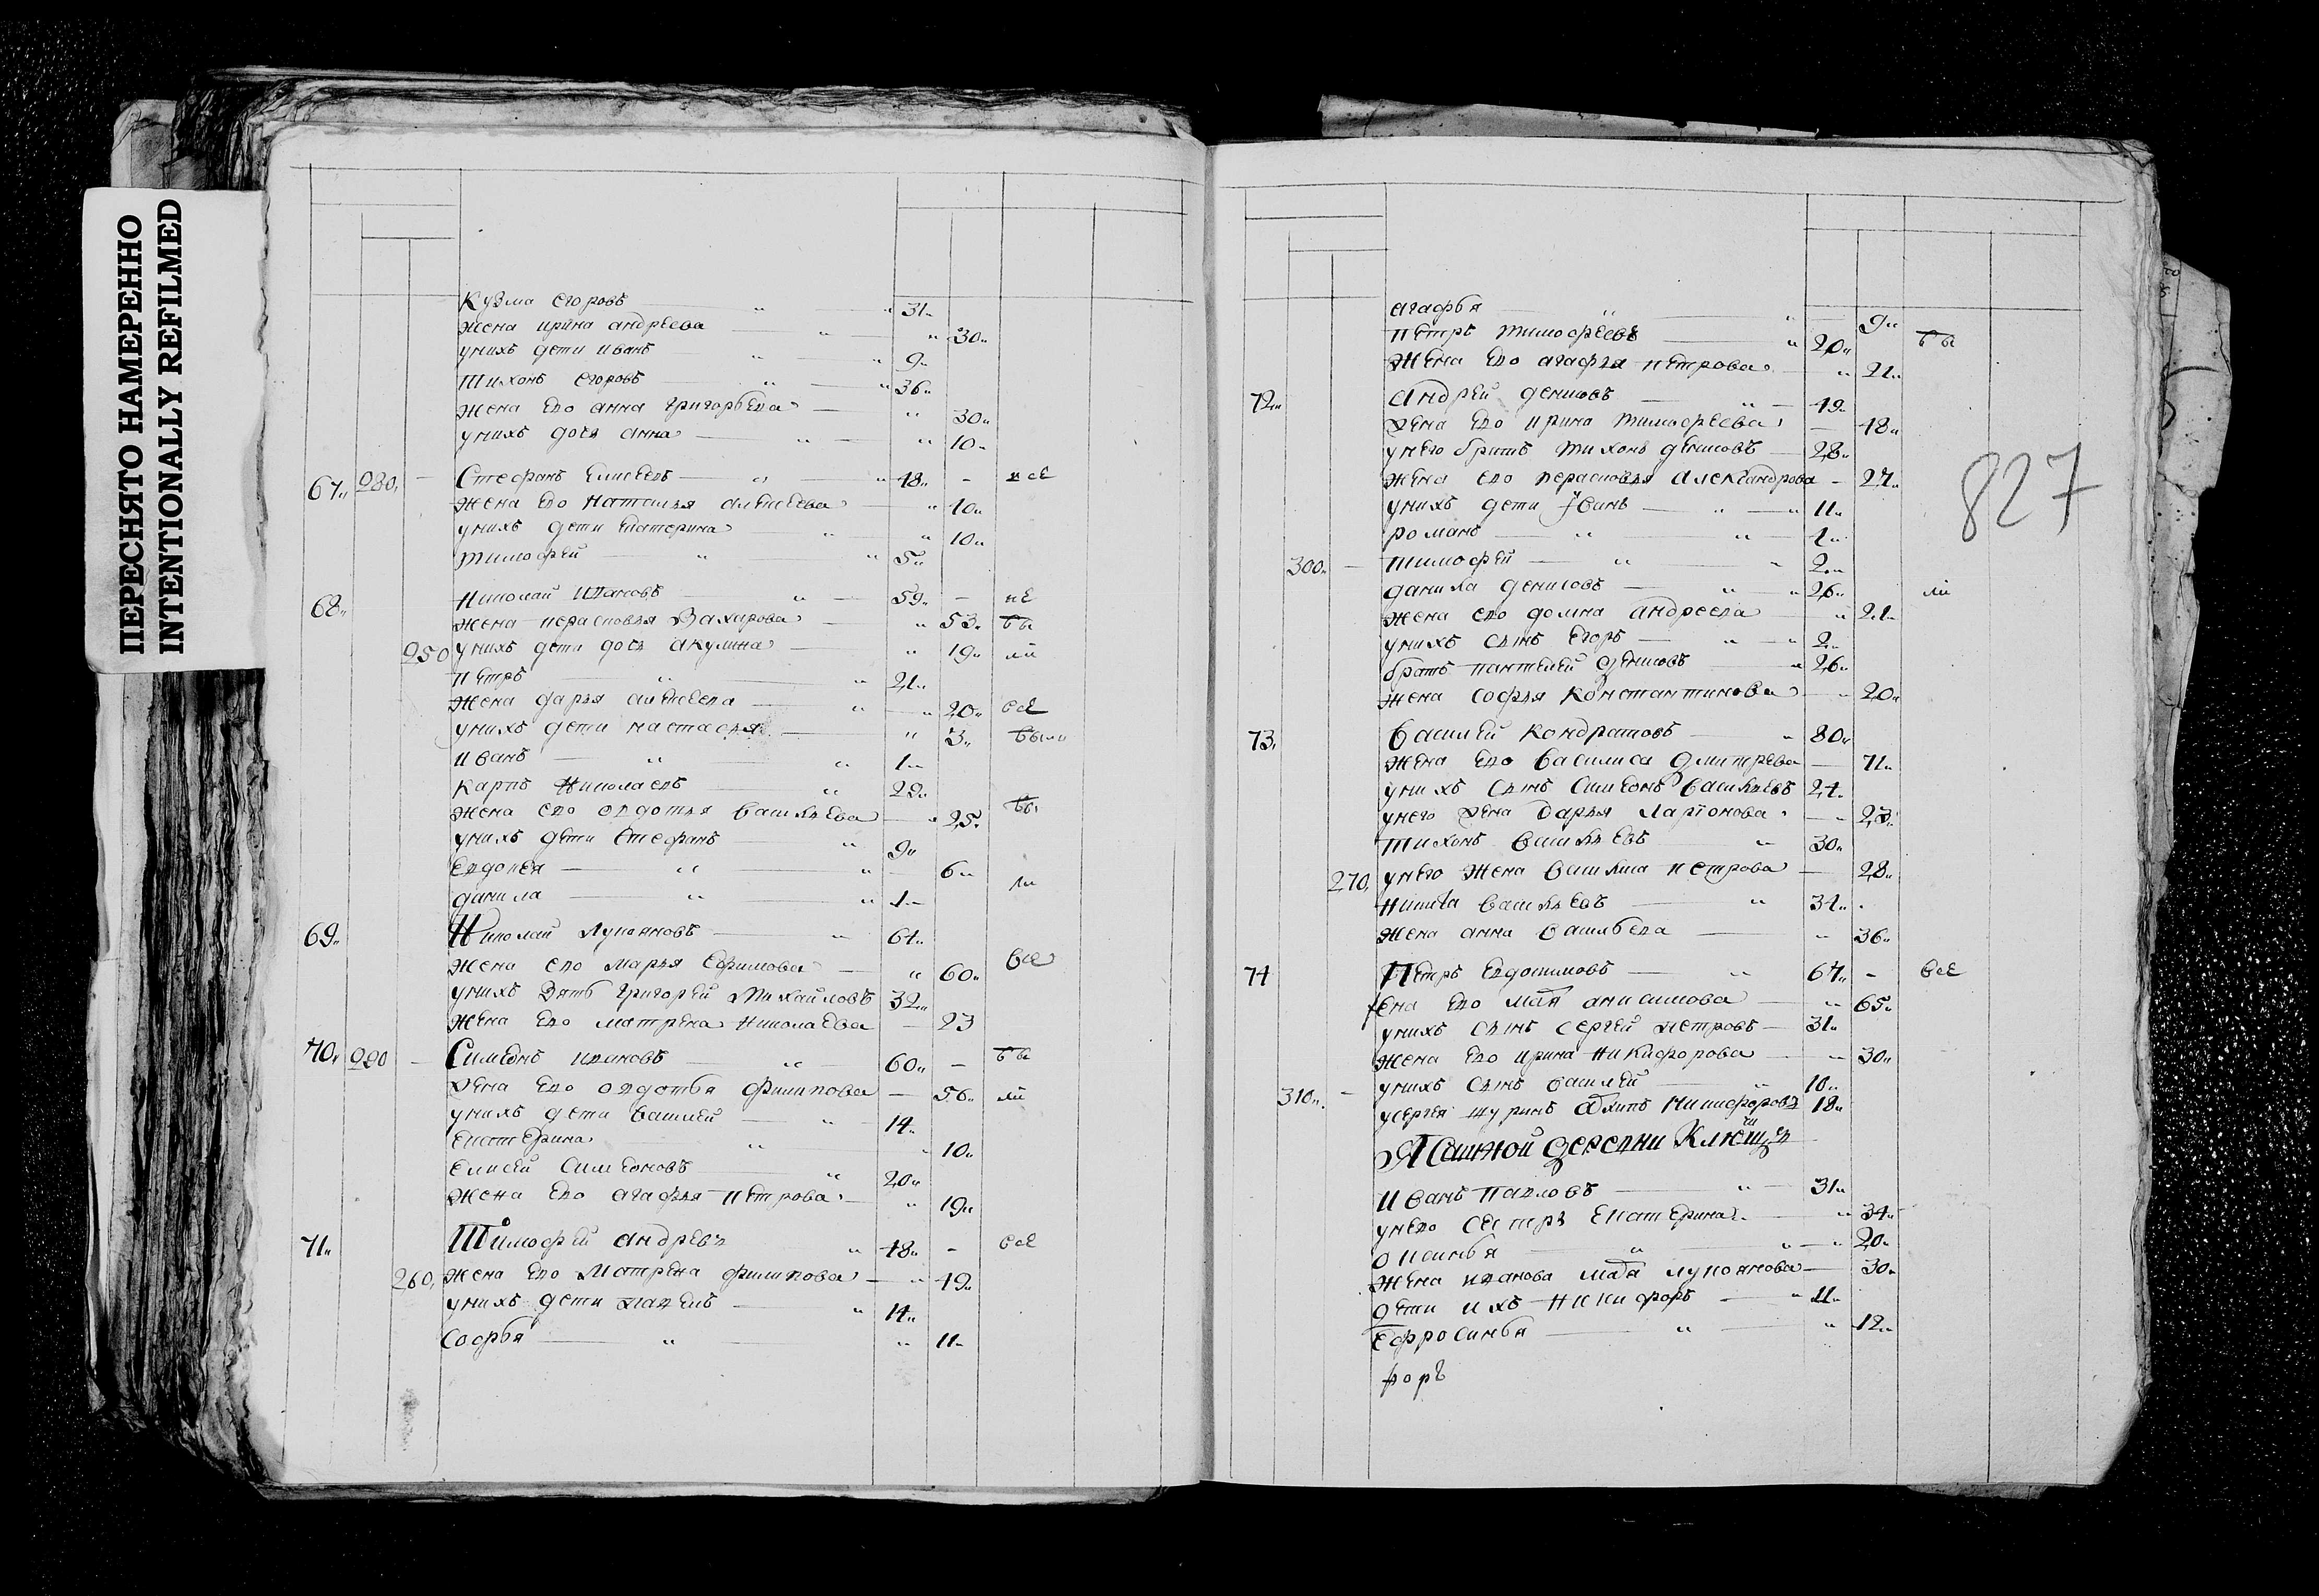 ПЕРЕСНЯТО НАМЕРЕННО
INTENTIONALLY REFILMED
Кузма егоровъ 31
жена ирина андреева 30
унихъ дети иванъ 9
Тихонъ егоровъ 36
жена ево анна григорьева 30
унихъ дочь анна 10
67 280 Стефанъ Елисеевъ 48 - все
жена ево наталья алексеева 40
унихъ дети екатерина 10
тимофей 5
68 Николай Ивановъ 59 - не
жена парасковья Захарова 53 бы
250 унихъ дети дочь акулина 19 ли
петръ 21
жена дарья алексеева 20 все
унихъ дети настасья 3 были
иванъ 1
карпъ Николаевъ 22
жена ево овдотья васильева 25 бы
унихъ дети стефанъ 9
Евдокея 6
ли
данила 1
69 Николай Лукояновъ 61
жена ево марья Ефимова 60 все
унихъ зять григорей михайловъ 32
жена ево матрена николаева - 23
70 290 Симеонъ ивановъ 60 - бы
жена ево овдотья филипова - 56 ли
унихъ дети василей 14
екатерина 10
елисей симеоновъ 20
жена ево агафья петрова 19
71 Тимофей андревъ 48 - все
260 жена ево матрена филипова 49
унихъ дети павелъ 14
софья 11
агафья 9
петръ тимофеевъ 20 бы
жена ево агафья петрова 21
72 Андрей денисовъ 49
жена ево ирина тимофеева - 48
унего братъ тихонъ денисовъ 28
жена ево парасковья александрова - 27
унихъ дети иванъ 11
романъ
827
300 - тимофей 2
данила денисовъ 26 ли
жена ево домна андреева 21
унихъ сынъ егоръ 2
братъ пантелей денисовъ 26
жена софья константинова 20
73 Василей кондратовъ 80
жена ево василиса дмитрева 71
унихъ сынъ симеонъ васильевъ 24
унего жена дарья ларионова 23
тихонъ васильевъ 30
270 унего жена василиса петрова 28
никита васильевъ 34
жена анна васильева 36
74 Петръ Евдокимовъ 67 - все
жена ево анисимова 65
унихъ сынъ сергей петровъ 31
жена ево ирина никифорова 30
310 - унихъ сынъ василей 10
усергея шуринъ архипъ никифоровъ 18
деревни Ключищъ
иванъ павловъ 31
унево сестры екатерина 34
20
жена иванова лукоянова 30
дети ихъ никифоръ 11
ефросинья 12
форъ